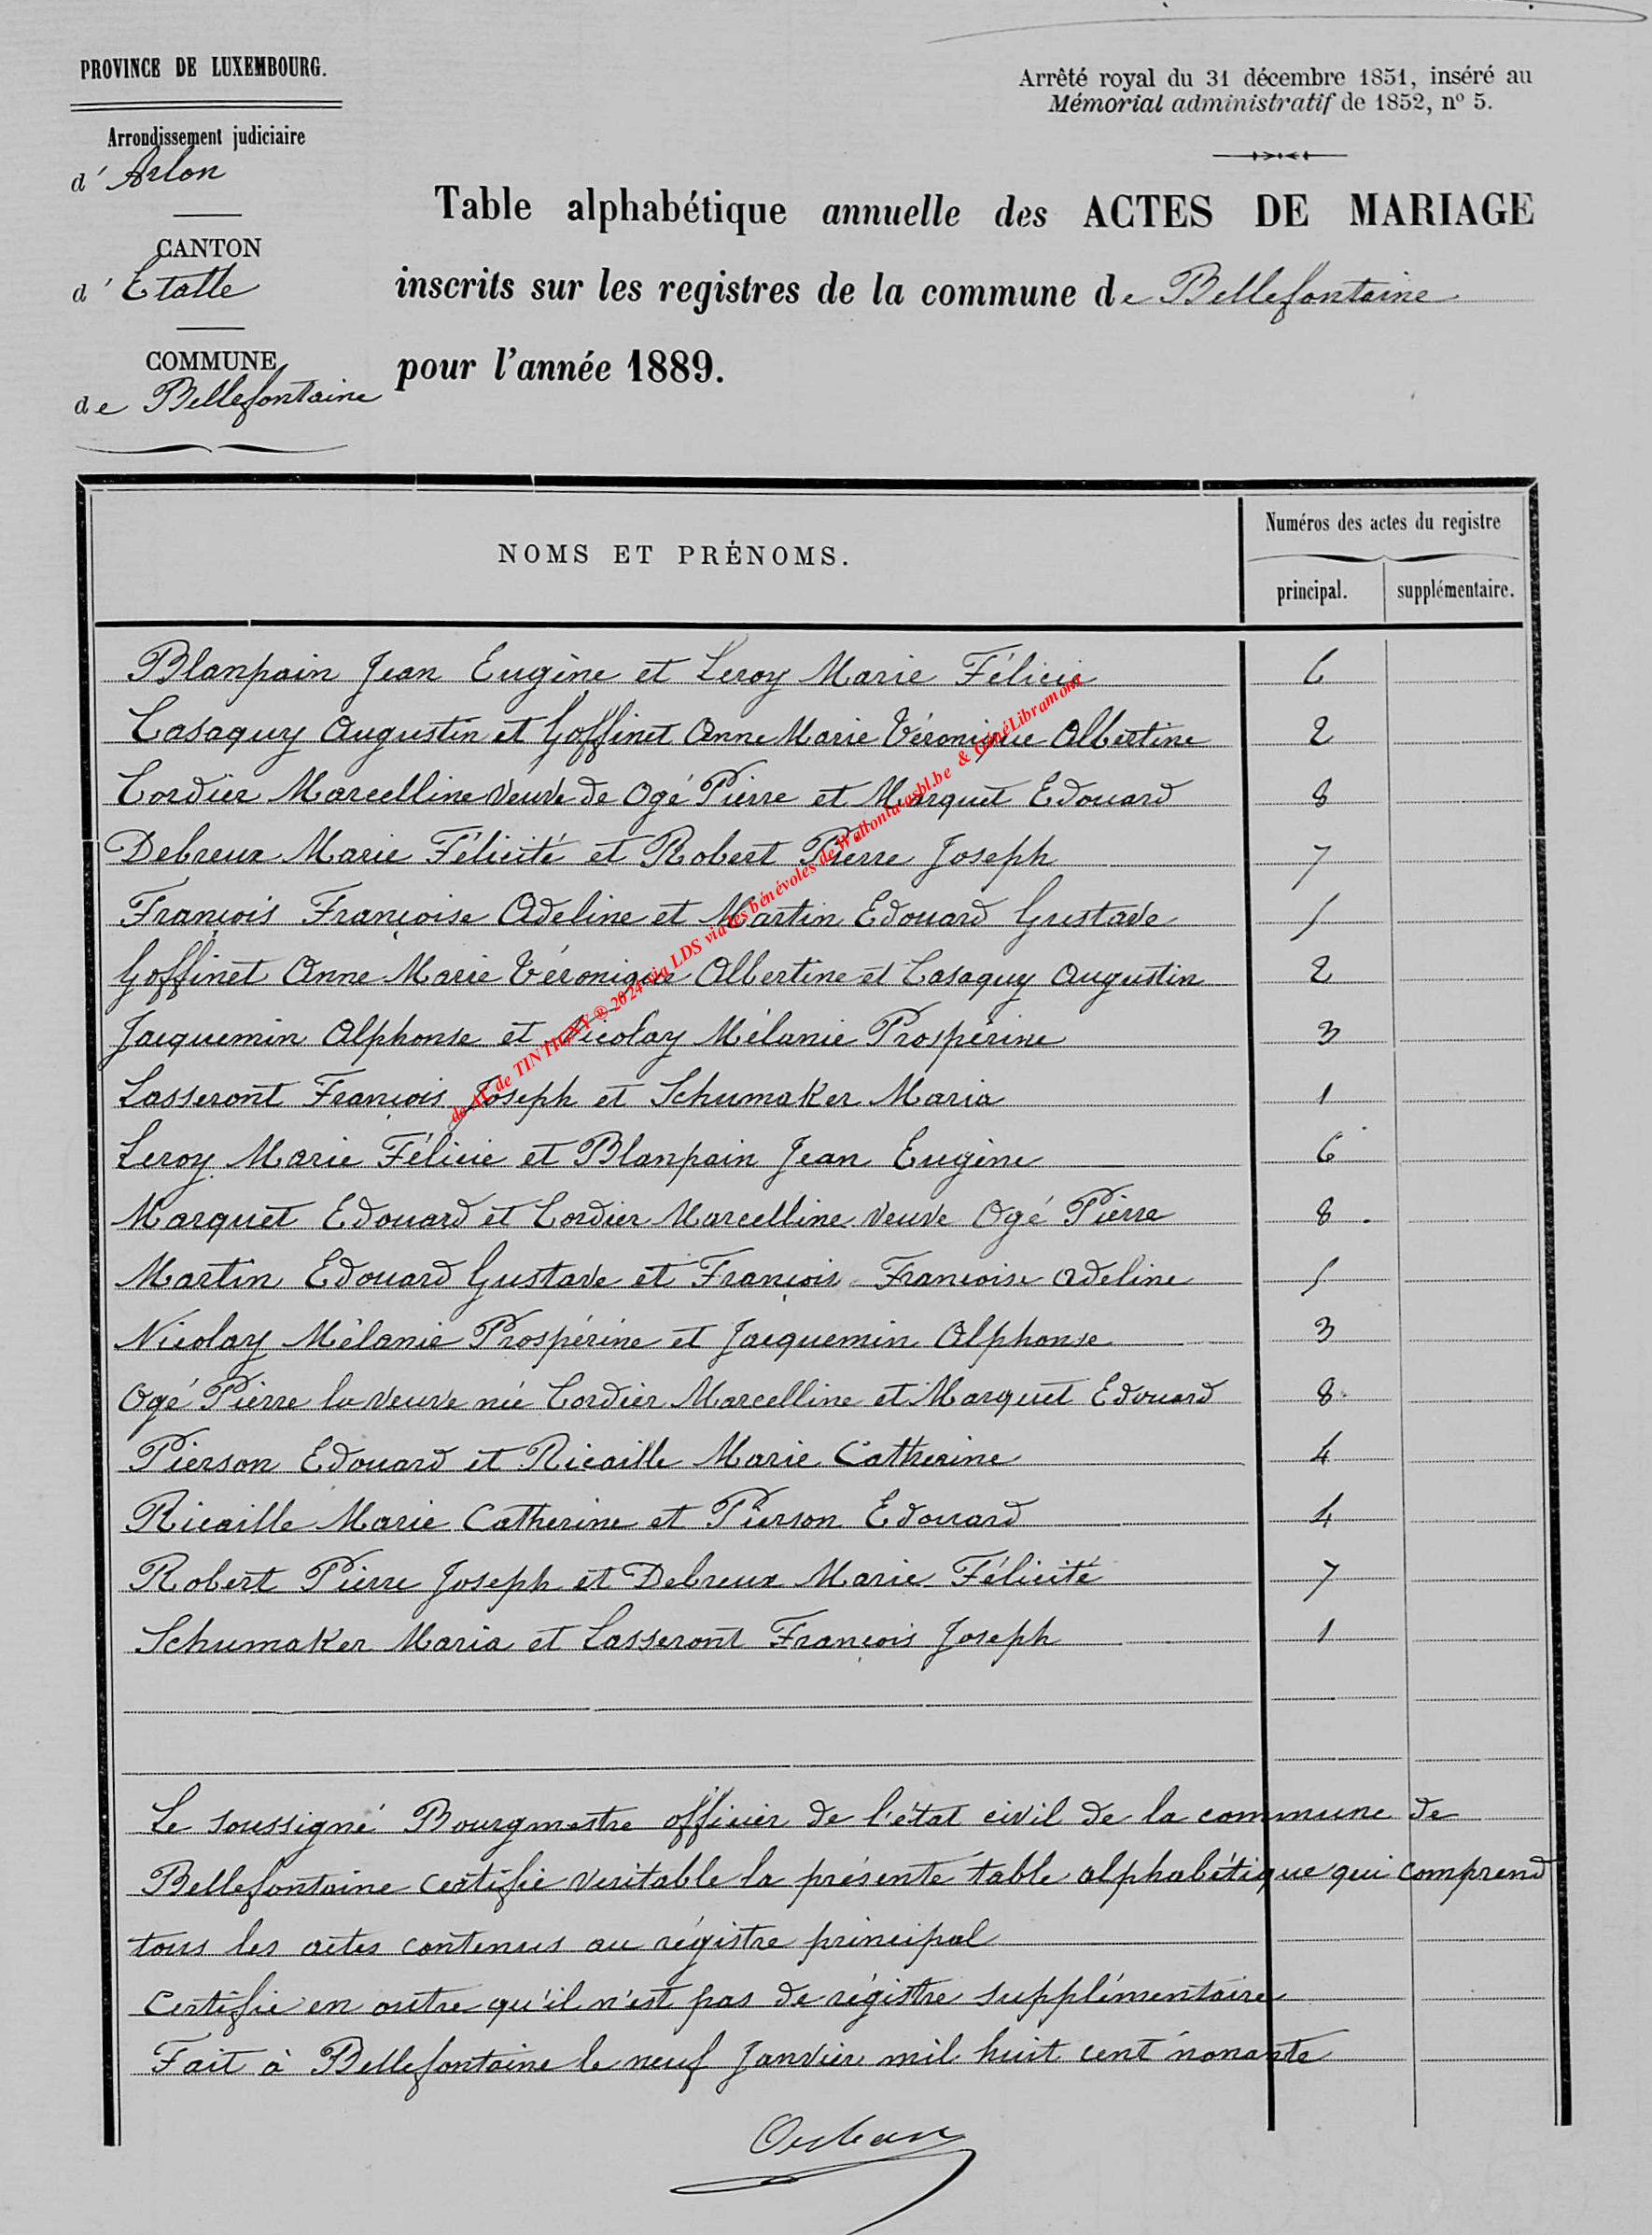 PROVINCE DE LUXEMBOURG.
Arrondissement judiciaire
d' Arlon
CANTON
d' Etalle
COMMUNE
de Bellefontaine
Arrêté royal du 31 décembre 1851, inséré au
Mémorial administratif de 1852, nº 5.
Table alphabétique annuelle des ACTES DE MARIAGE
inscrits sur les registres de la commune de Bellefontaine
pour l'année 1889.
NOMS ET PRÉNOMS.
Numéros des actes du registre
principal. supplémentaire.
Blanpain Jean Eugène et Leroy Marie Félicie 6
Casaquy Augustin et Goffinet Anne Marie Véronique Albertine 2
Cordier Marcelline veuve de Ogé Pierre et Marquet Edouard 8
Debreux Marie Félicité et Robert Pierre Joseph 7
François Françoise Adeline et Martin Edouard Gustave 5
Goffinet Anne Marie Véronique Albertine et Casaquy Augustin 2
Jacquemin Alphonse et Nicolay Mélanie Prospérine 3
Lasseront François Joseph et Schumaker Maria 1
Leroy Marie Félicie et Blanpain Jean Eugène 6
Marquet Edouard et Cordier Marcelline veuve Ogé Pierre 8
Martin Edouard Gustave et François Françoise Adeline 5
Nicolay Mélanie Prospérine et Jacquemin Alphonse 3
Ogé Pierre la veuve née Cordier Marcelline et Marquet Edouard 8
Pierson Edouard et Ricaille Marie Catherine 4
Ricaille Marie Catherine et Pierson Edouard 4
Robert Pierre Joseph et Debreux Marie Félicité 7
Schumaker Maria et Lasseront François Joseph 1
Le soussigné Bourgmestre officier de l'état civil de la commune de
Bellefontaine certifie véritable la présente table alphabétique qui comprend
tous les actes contenus au régistre principal
Certifie en outre qu'il n'est pas de régistre supplémentaire
Fait à Bellefontaine le neuf Janvier mil huit cent nonante
de AE de TINTIGNY ® 2024 via LDS via les bénévoles de Wallonia-asbl.be & GénéLibramont